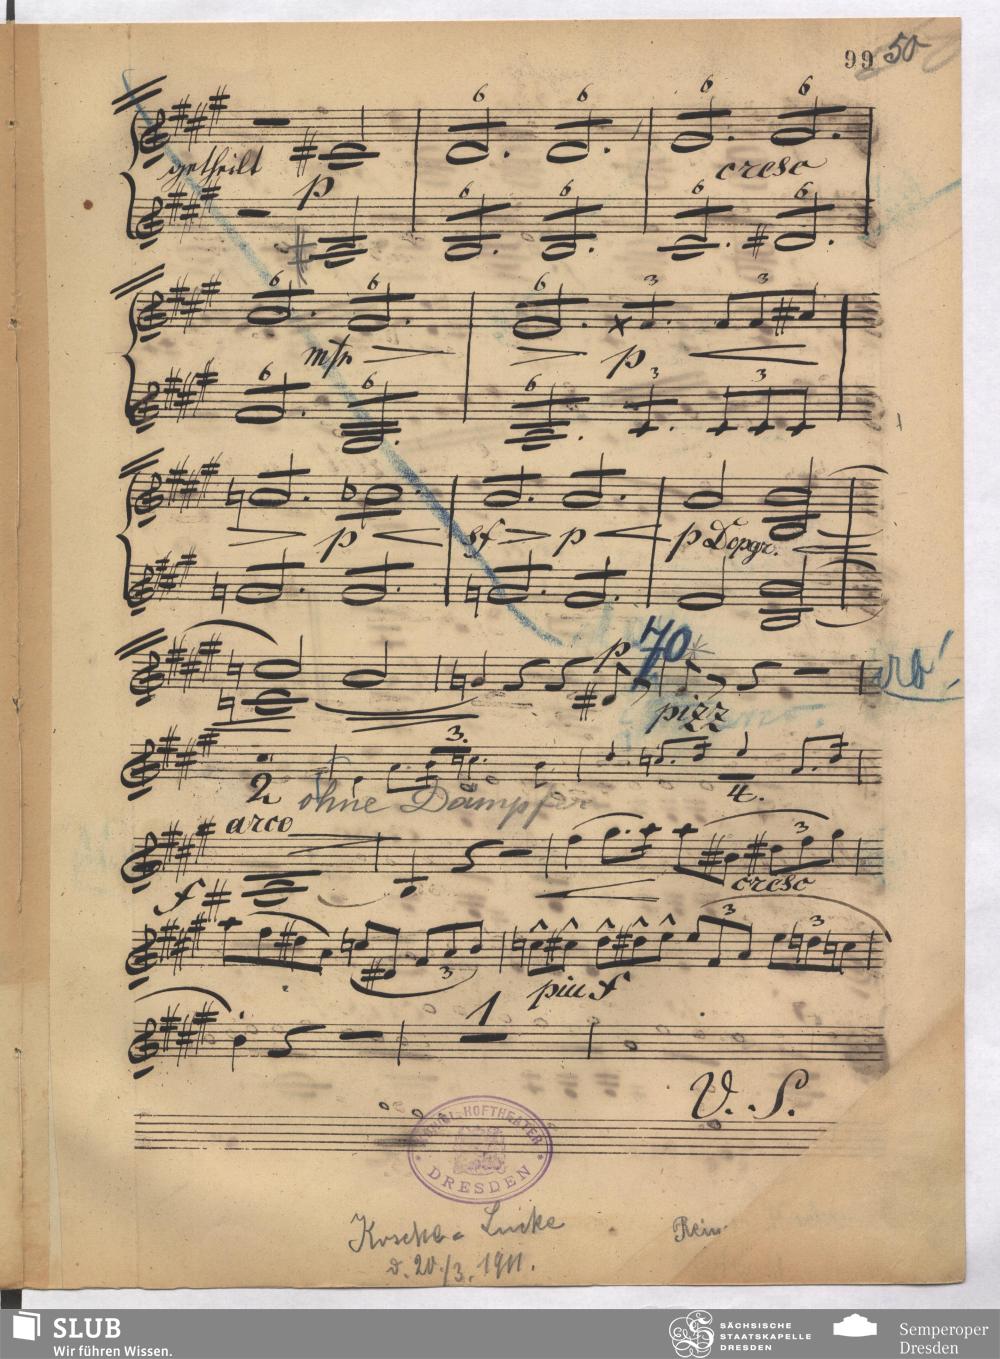 99 50
6 6 6 6
getheilt p cresc
6 6 6 6
6 6 6 3 3
mfp p
6 6 6 3 3
p sf p p Dopgr.
p 70
pizz
3.
2 ohne Dämpfer 4.
arco
f 3 cresc
3 3 3
più f
1
V. S.
KÖNIGL. HOFTHEATER
DRESDEN
Lucke
d. 20./3. 1911.
SLUB
Wir führen Wissen.
SÄCHSISCHE
STAATSKAPELLE
DRESDEN
Semperoper
Dresden